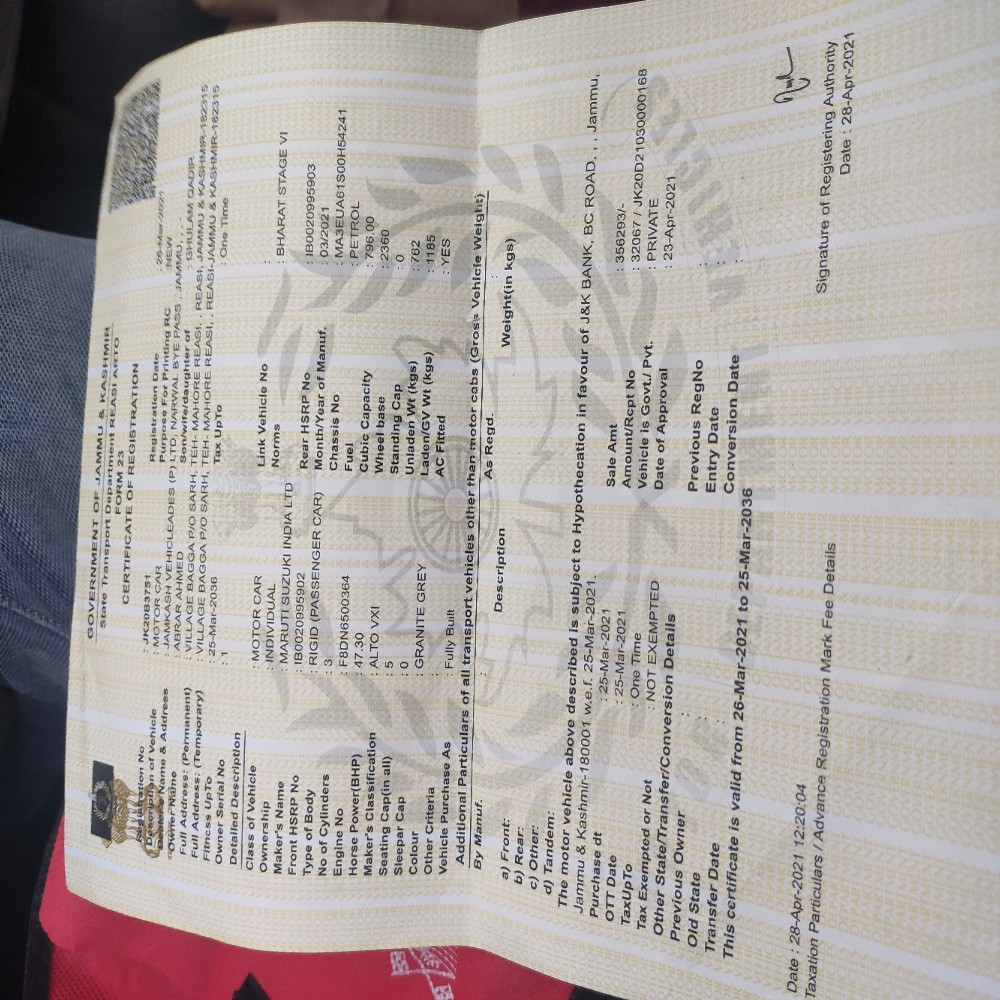 GOVERNMENT OF JAMMU & KASHMIR
State Transport Department REASI ARTO
FORM 23
CERTIFICATE OF REGISTRATION
Registration No : JK20B3751 Registration Date : 26-Mar-2021
Description of Vehicle : MOTOR CAR Purpose For Printing RC : NEW
Name & Address : JAMKASH VEHICLEADES (P) LTD, NARWAL BYE PASS , JAMMU, , ,
Owner Name : ABRAR AHMED Son/wife/daughter of : GHULAM QADIR
Full Address: (Permanent) : VILLAGE BAGGA P/O SARH, TEH- MAHORE REASI, , REASI, JAMMU & KASHMIR-182315
Full Address: (Temporary) : VILLAGE BAGGA P/O SARH, TEH- MAHORE REASI, , REASI-JAMMU & KASHMIR-182315
Fitness UpTo : 25-Mar-2036 Tax UpTo : One Time
Owner Serial No : 1
Detailed Description
Class of Vehicle : MOTOR CAR Link Vehicle No :
Ownership : INDIVIDUAL Norms : BHARAT STAGE VI
Maker's Name : MARUTI SUZUKI INDIA LTD
Front HSRP No : IB0020995902 Rear HSRP No : IB0020995903
Type of Body : RIGID (PASSENGER CAR) Month/Year of Manuf. : 03/2021
No of Cylinders : 3 Chassis No : MA3EUA61S00H54241
Engine No : F8DN6500364 Fuel : PETROL
Horse Power(BHP) : 47.30 Cubic Capacity : 796.00
Maker's Classification : ALTO VXI Wheel base : 2360
Seating Cap(in all) : 5 Standing Cap : 0
Sleepar Cap : 0 Unladen Wt (kgs) : 762
Colour : GRANITE GREY Laden/GV Wt (kgs) : 1185
Other Criteria : AC Fitted : YES
Vehicle Purchase As : Fully Built
Additional Particulars of all transport vehicles other than motor cabs (Gross Vehicle Weight)
By Manuf. : As Regd. :
Description Weight(in kgs)
a) Front:
b) Rear:
c) Other:
d) Tandem:
The motor vehicle above described is subject to Hypothecation in favour of J&K BANK, BC ROAD, , , Jammu,
Jammu & Kashmir-180001 w.e.f. 25-Mar-2021.
Purchase dt : 25-Mar-2021 Sale Amt : 356293/-
OTT Date : 25-Mar-2021 Amount/Rcpt No : 32067 / JK20D21030000168
TaxUpTo : One Time Vehicle is Govt./ Pvt. : PRIVATE
Tax Exempted or Not : NOT EXEMPTED Date of Approval : 23-Apr-2021
Other State/Transfer/Conversion Details
Previous Owner : Previous RegNo :
Old State : Entry Date :
Transfer Date : Conversion Date :
This certificate is valid from 26-Mar-2021 to 25-Mar-2036
Signature of Registering Authority
Date : 28-Apr-2021 12:20:04 Date : 28-Apr-2021
Taxation Particulars / Advance Registration Mark Fee Details